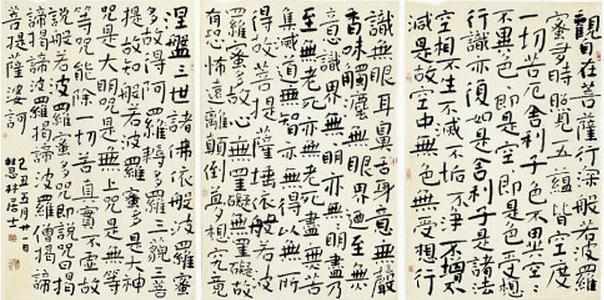 觀自在菩薩行深般若波羅
蜜多時照見五蘊皆空度
一切苦厄舍利子色不異空、
不異色、即是空、即是色受想
行識亦復如是舍利子是諸法
空相不生不滅不垢不淨不增不
減是故空中無色無受想行
識無眼耳鼻舌身意無聲
香味觸法無眼界迺至無
意識界無、明亦無、明盡乃
至無老死亦無老死盡無苦
集滅道無智亦無得以無所
得故菩提薩埵依般若波
羅蜜多故心無罣礙無罣礙故
有恐怖遠離顛倒夢想究竟
涅盤三世諸佛依般波羅蜜
多故得阿羅耨多羅三藐三菩
提故知般若波羅蜜多是大神
咒是大明咒是無上咒是無等
等咒能除一切苦真實不虛故
說般若波羅蜜多咒即說咒曰揭
諦揭諦波羅揭諦波羅僧揭諦
菩提薩婆訶
己丑五月廿一日
居士